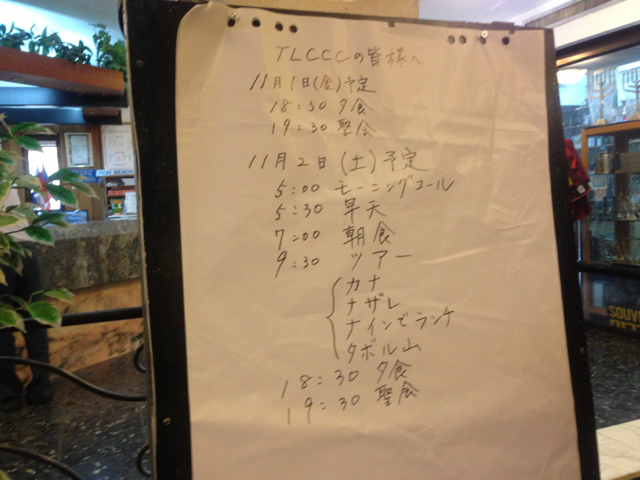 TLCCCの皆様へ
11月1日(金)予定
18:30 夕食
19:30 聖会
11月2日(土)予定
5:00 モーニングコール
5:30 早天
7:00 朝食
9:30 ツアー
カナ
ナザレ
ナインでランチ
タボル山
18:30 夕食
19:30 聖会
SOUV